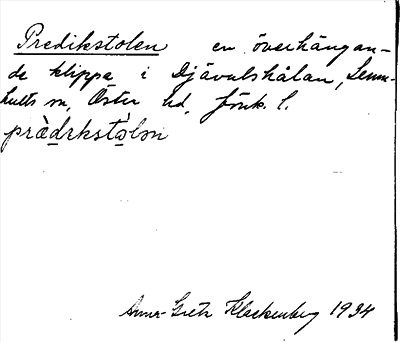 Predikstolen en överhängan-
de klippa i Djävulshålan, Lemn-
hults sn, Öster hd, Jönk. l.
prädɩkstɷ̀lən
Anna-Greta Klackenberg 1934